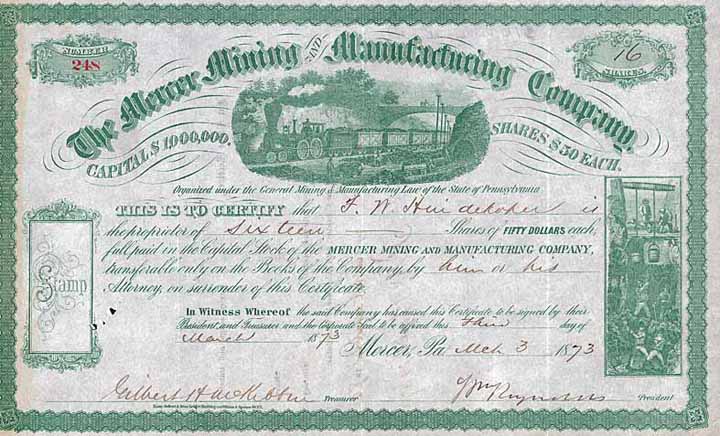 NUMBER
248
The Mercer Mining AND Manufacturing Company.
16
SHARES
CAPITAL $1,000,000.
SHARES $50 EACH.
Organized under the General Mining & Manufacturing Law of the State of Pennsylvania
THIS IS TO CERTIFY that F. W. Huidekoper is
the proprietor of Sixteen Shares of FIFTY DOLLARS each,
full paid in the Capital Stock of the MERCER MINING AND MANUFACTURING COMPANY,
transferable only on the Books of the Company, by him or his
Attorney, on surrender of this Certificate.
Stamp
In Witness Whereof the said Company has caused this Certificate to be signed by their
President and Treasurer and the Corporate Seal to be affixed this Third day of
March 1873
Mercer, Pa Mch 3 1873
Treasurer
Wm Reynolds President